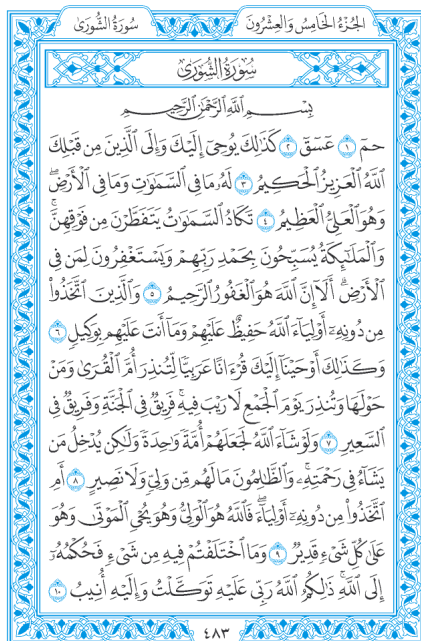 الجُزْءُ الخَامِسُ وَالعِشْرُونَ
سُورَةُ الشُّورَىٰ
سُورَةُ الشُّورَىٰ
بِسْمِ ٱللَّهِ ٱلرَّحْمَٰنِ ٱلرَّحِيمِ
حمٓ ١ عٓسٓقٓ ٢ كَذَٰلِكَ يُوحِيٓ إِلَيْكَ وَإِلَى ٱلَّذِينَ مِن قَبْلِكَ
ٱللَّهُ ٱلْعَزِيزُ ٱلْحَكِيمُ ٣ لَهُۥ مَا فِي ٱلسَّمَٰوَٰتِ وَمَا فِي ٱلْأَرْضِۖ
وَهُوَ ٱلْعَلِيُّ ٱلْعَظِيمُ ٤ تَكَادُ ٱلسَّمَٰوَٰتُ يَتَفَطَّرْنَ مِن فَوْقِهِنَّۚ
وَٱلْمَلَٰٓئِكَةُ يُسَبِّحُونَ بِحَمْدِ رَبِّهِمْ وَيَسْتَغْفِرُونَ لِمَن فِي
ٱلْأَرْضِۗ أَلَآ إِنَّ ٱللَّهَ هُوَ ٱلْغَفُورُ ٱلرَّحِيمُ ٥ وَٱلَّذِينَ ٱتَّخَذُوا۟
مِن دُونِهِۦٓ أَوْلِيَآءَ ٱللَّهُ حَفِيظٌ عَلَيْهِمْ وَمَآ أَنتَ عَلَيْهِم بِوَكِيلٍ ٦
وَكَذَٰلِكَ أَوْحَيْنَآ إِلَيْكَ قُرْءَانًا عَرَبِيًّا لِّتُنذِرَ أُمَّ ٱلْقُرَىٰ وَمَنْ
حَوْلَهَا وَتُنذِرَ يَوْمَ ٱلْجَمْعِ لَا رَيْبَ فِيهِۚ فَرِيقٌ فِي ٱلْجَنَّةِ وَفَرِيقٌ فِي
ٱلسَّعِيرِ ٧ وَلَوْ شَآءَ ٱللَّهُ لَجَعَلَهُمْ أُمَّةً وَٰحِدَةً وَلَٰكِن يُدْخِلُ مَن
يَشَآءُ فِي رَحْمَتِهِۦۚ وَٱلظَّٰلِمُونَ مَا لَهُم مِّن وَلِيٍّ وَلَا نَصِيرٍ ٨ أَمِ
ٱتَّخَذُوا۟ مِن دُونِهِۦٓ أَوْلِيَآءَۖ فَٱللَّهُ هُوَ ٱلْوَلِيُّ وَهُوَ يُحْيِ ٱلْمَوْتَىٰ وَهُوَ
عَلَىٰ كُلِّ شَيْءٍ قَدِيرٌ ٩ وَمَا ٱخْتَلَفْتُمْ فِيهِ مِن شَيْءٍ فَحُكْمُهُۥٓ
إِلَى ٱللَّهِۚ ذَٰلِكُمُ ٱللَّهُ رَبِّي عَلَيْهِ تَوَكَّلْتُ وَإِلَيْهِ أُنِيبُ ١٠
٤٨٣